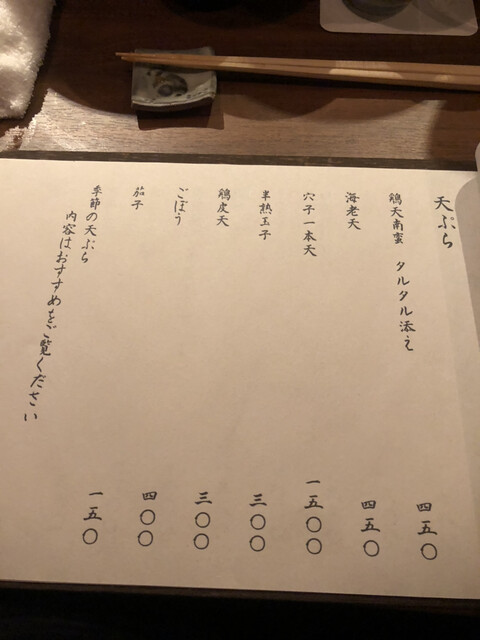 天ぷら
鶏天南蛮 タルタル添え 四五〇
海老天 四五〇
穴子一本天 一五〇〇
半熟玉子 三〇〇
鶏皮天 三〇〇
ごぼう 四〇〇
茄子 一五〇
季節の天ぷら
内容はおすすめをご覧ください